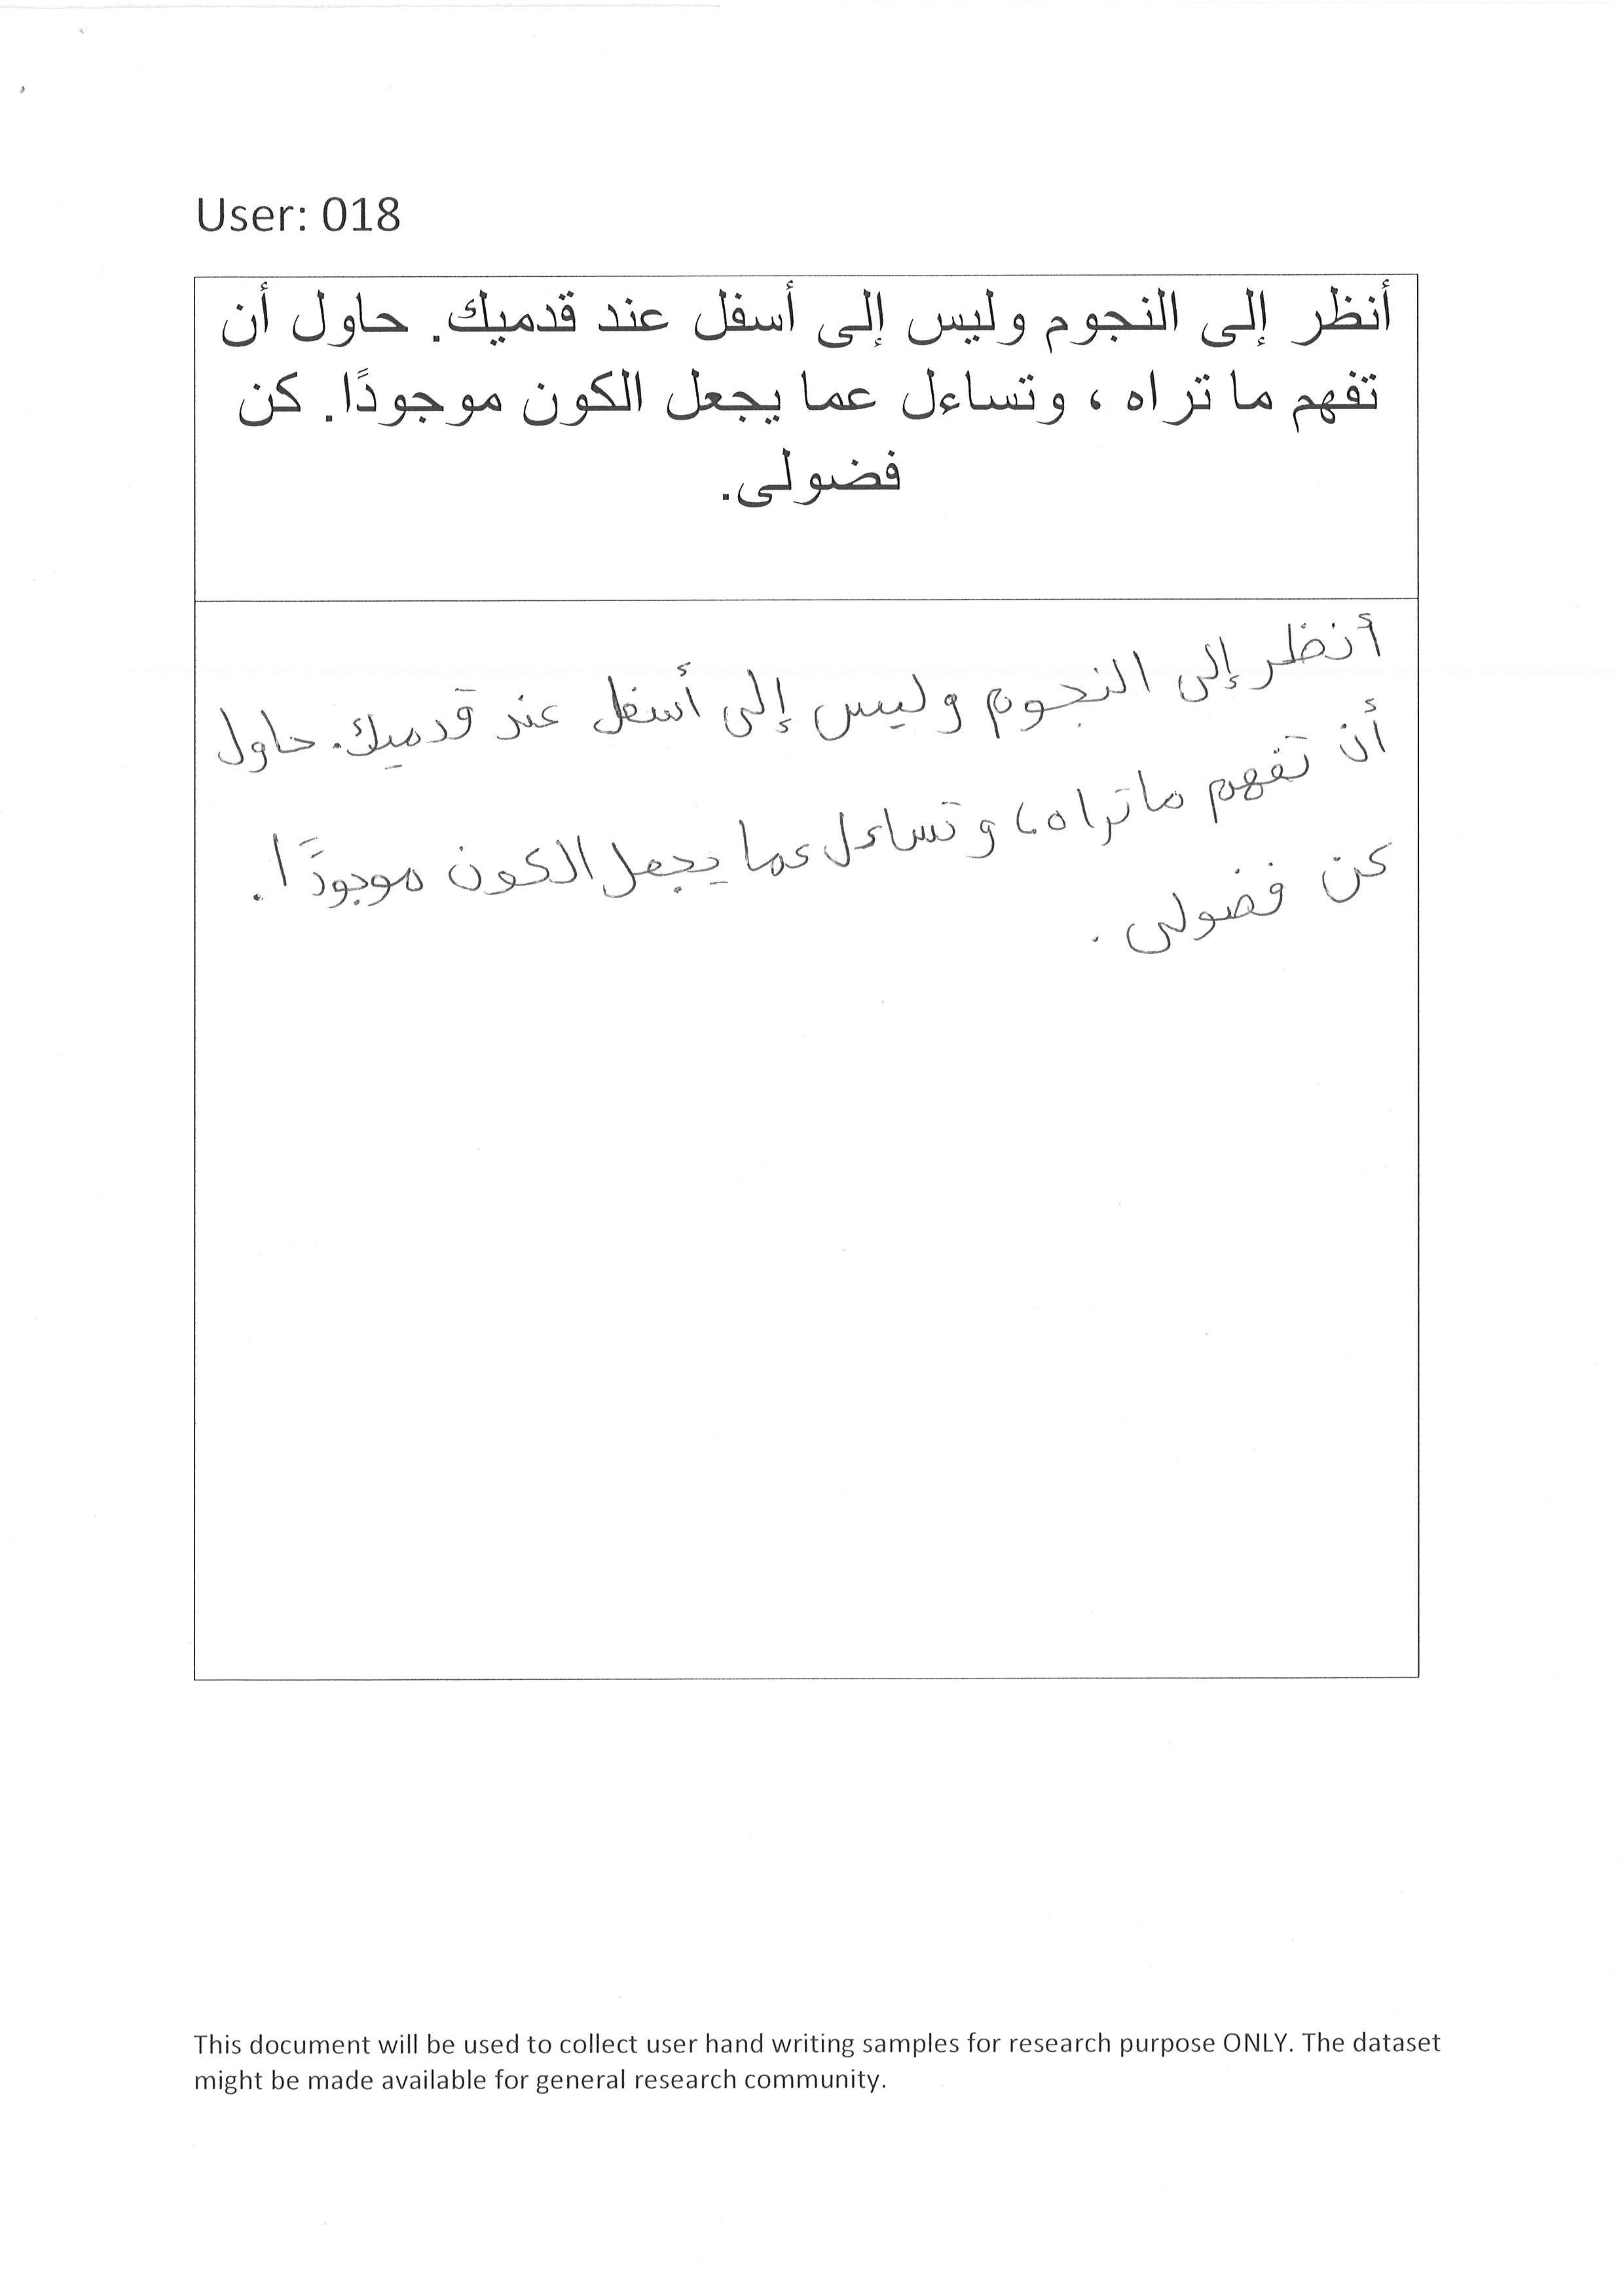 User: 018
أنظر إلى النجوم وليس إلى أسفل عند قدميك. حاول أن
تفهم ما تراه ، وتساءل عما يجعل الكون موجودًا. كن
فضولى.
أنظر إلى النجوم وليس إلى أسفل عند قدميك. حاول
أن تفهم ما تراه، وتساءل عما يجعل الكون موجودًا.
كن فضولى.
This document will be used to collect user hand writing samples for research purpose ONLY. The dataset
might be made available for general research community.